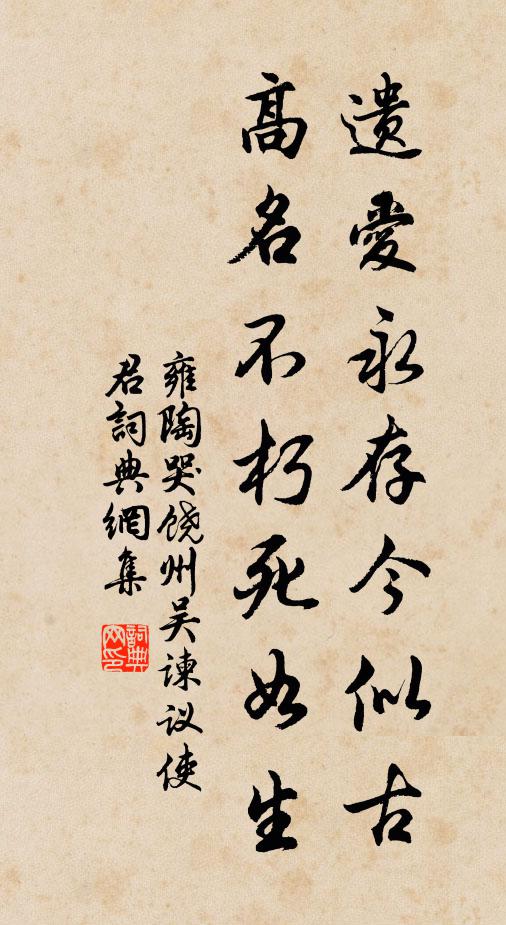 遺愛永存今似古
高名不朽死如生
雍陶哭饶州吴諫议使
君詞典網集
詞典
网印